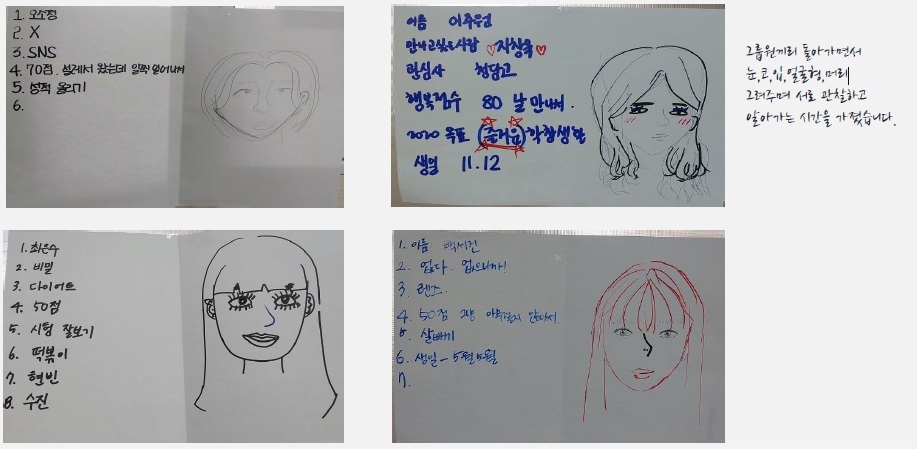 1. 오소정
2. X
3. SNS
4. 70점. 설레서 왔는데 일찍 일어나서
5. 성적 올리기
6.
이름 이주원
만나고싶은사람 ♡지창욱♡
관심사 청담고
행복점수 80 날 만나서.
2020 목표 (즐거운) 학창생활
생일 11.12
그룹원끼리 돌아가면서
눈,코,입,얼굴형,머리
그려주며 서로 관찰하고
알아가는 시간을 가졌습니다.
1. 최은수
2. 비밀
3. 다이어트
4. 50점
5. 시험 잘보기
6. 떡볶이
7. 현빈
8. 수진
1. 이름 백서진
2. 없다. 없으니까!
3. 렌즈.
4. 50점
5. 살빼기
6. 생일 - 5월5일
7.